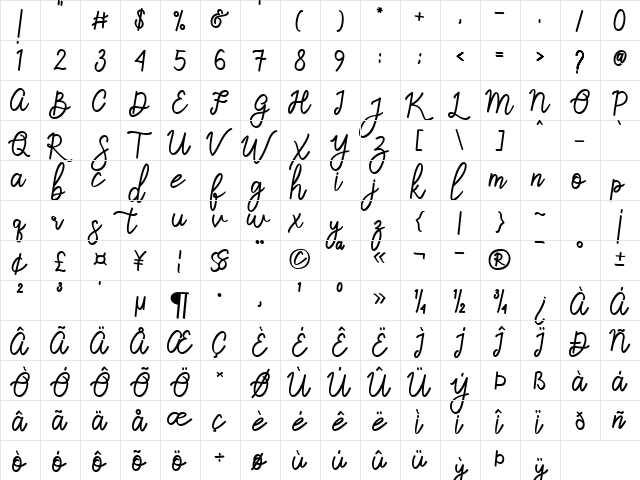 ! " # $ % & ' ( ) * + , - . / 0
1 2 3 4 5 6 7 8 9 : ; < = > ? @
A B C D E F G H I J K L M N O P
Q R S T U V W X Y Z [ \ ] ^ _ `
a b c d e f g h i j k l m n o p
q r s t u v w x y z { | } ~ ¡
¢ £ ¤ ¥ ¦ § ¨ © ª « ¬ - ® ¯ ° ±
² ³ ´ µ ¶ · ¸ ¹ º » ¼ ½ ¾ ¿ À Á
Â Ã Ä Å Æ Ç È É Ê Ë Ì Í Î Ï Ð Ñ
Ò Ó Ô Õ Ö × Ø Ù Ú Û Ü Ý Þ ß à á
â ã ä å æ ç è é ê ë ì í î ï ð ñ
ò ó ô õ ö ÷ ø ù ú û ü ý þ ÿ